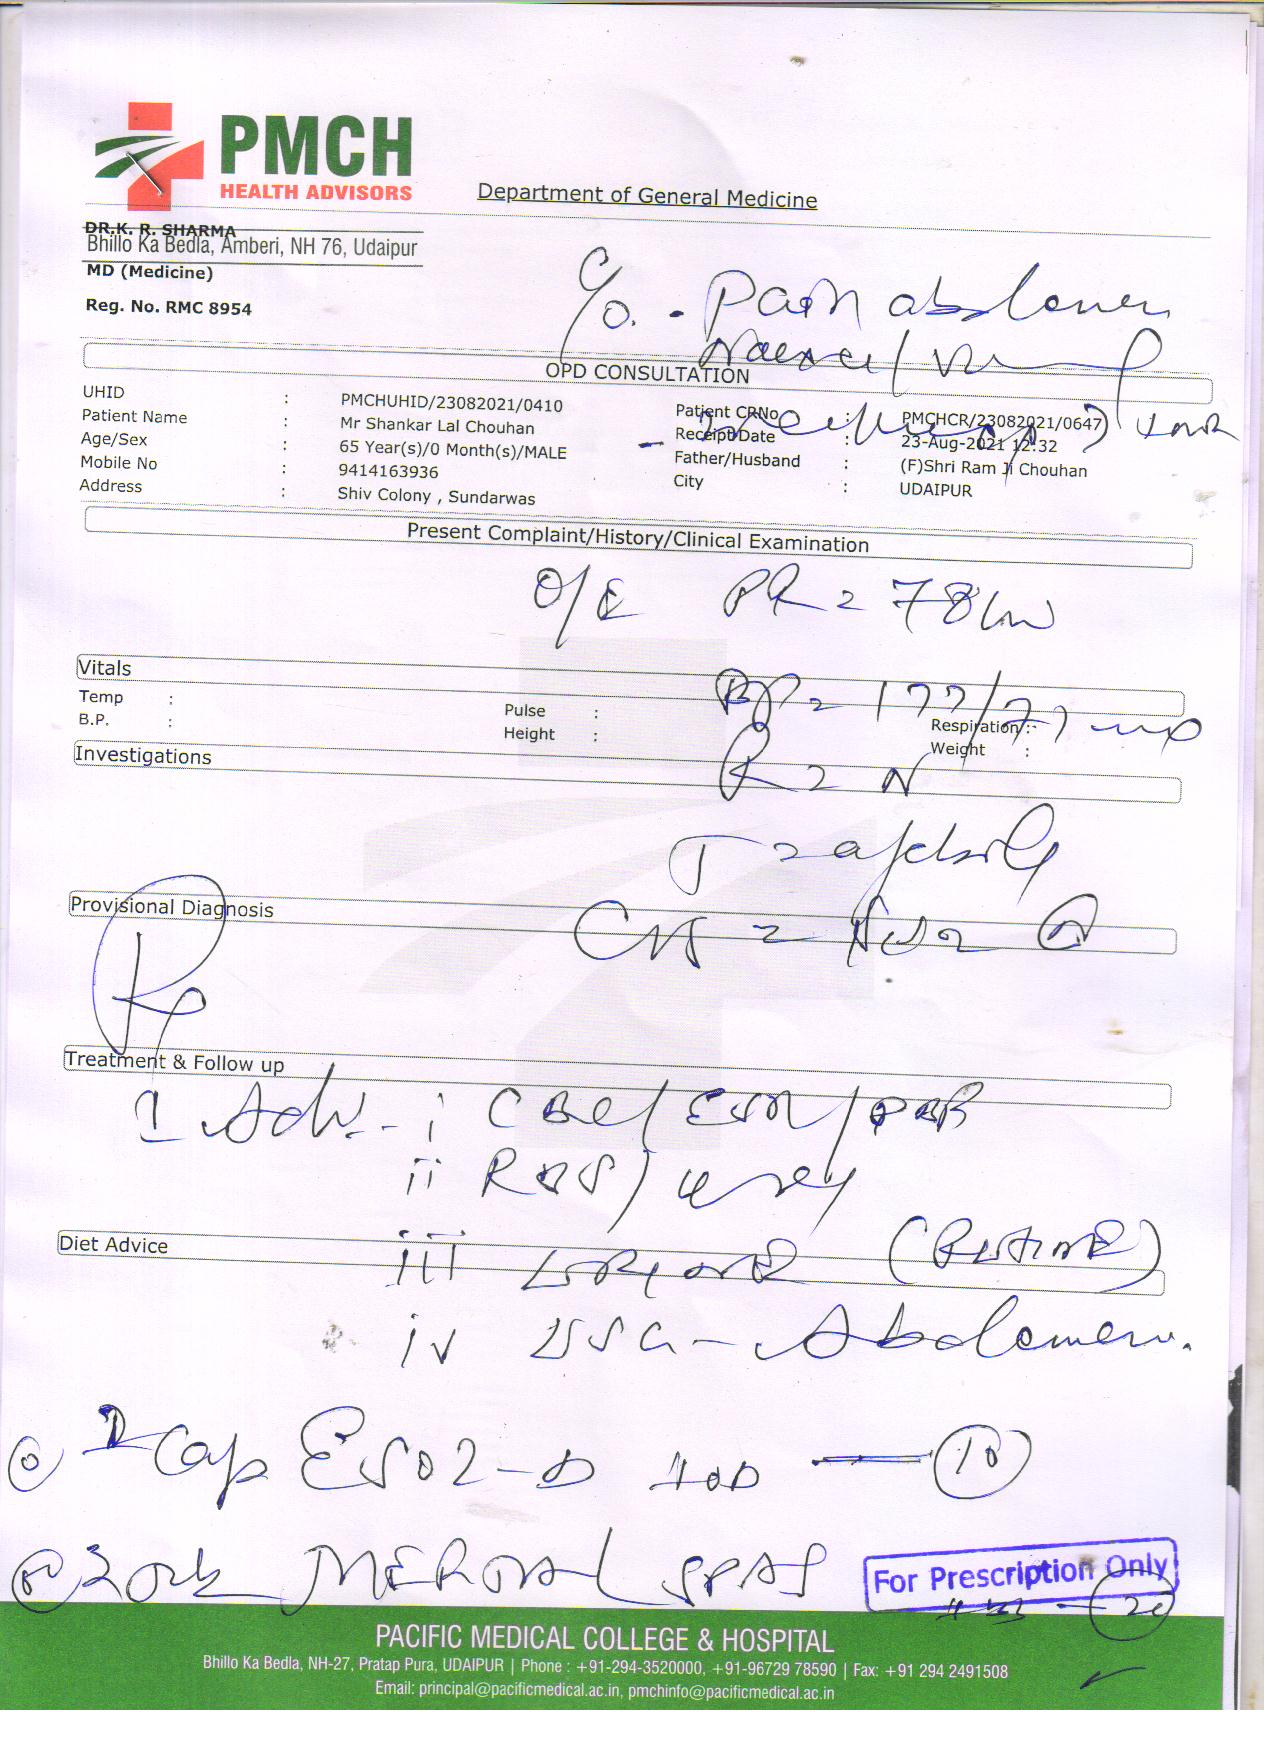 PMCH
HEALTH ADVISORS
Department of General Medicine
DR.K. R. SHARMA
Bhillo Ka Bedla, Amberi, NH 76, Udaipur
MD (Medicine)
Reg. No. RMC 8954
C/o. - Pain abdomen
OPD CONSULTATION
UHID : PMCHUHID/23082021/0410
Patient CRNo : PMCHCR/23082021/0647
Patient Name : Mr Shankar Lal Chouhan
Receipt Date : 23-Aug-2021 12:32
Age/Sex : 65 Year(s)/0 Month(s)/MALE
Father/Husband : (F)Shri Ram Ji Chouhan
Mobile No : 9414163936
City : UDAIPUR
Address : Shiv Colony , Sundarwas
Present Complaint/History/Clinical Examination
O/E PR = 78
Vitals
BP =
Temp :
Pulse :
Respiration :
B.P. :
Height :
Weight :
Investigations
R = N
T = afebrile
Provisional Diagnosis
CVS =
Treatment & Follow up
I Adv. - i CBC/ESR/PBF
ii RBS/
Diet Advice
iii
iv USG - Abdomen.
Cap ESOZ-D 1OD — 10
MEROVAL SPAS
For Prescription Only
20
PACIFIC MEDICAL COLLEGE & HOSPITAL
Bhillo Ka Bedla, NH-27, Pratap Pura, UDAIPUR | Phone : +91-294-3520000, +91-96729 78590 | Fax: +91 294 2491508
Email: principal@pacificmedical.ac.in, pmchinfo@pacificmedical.ac.in